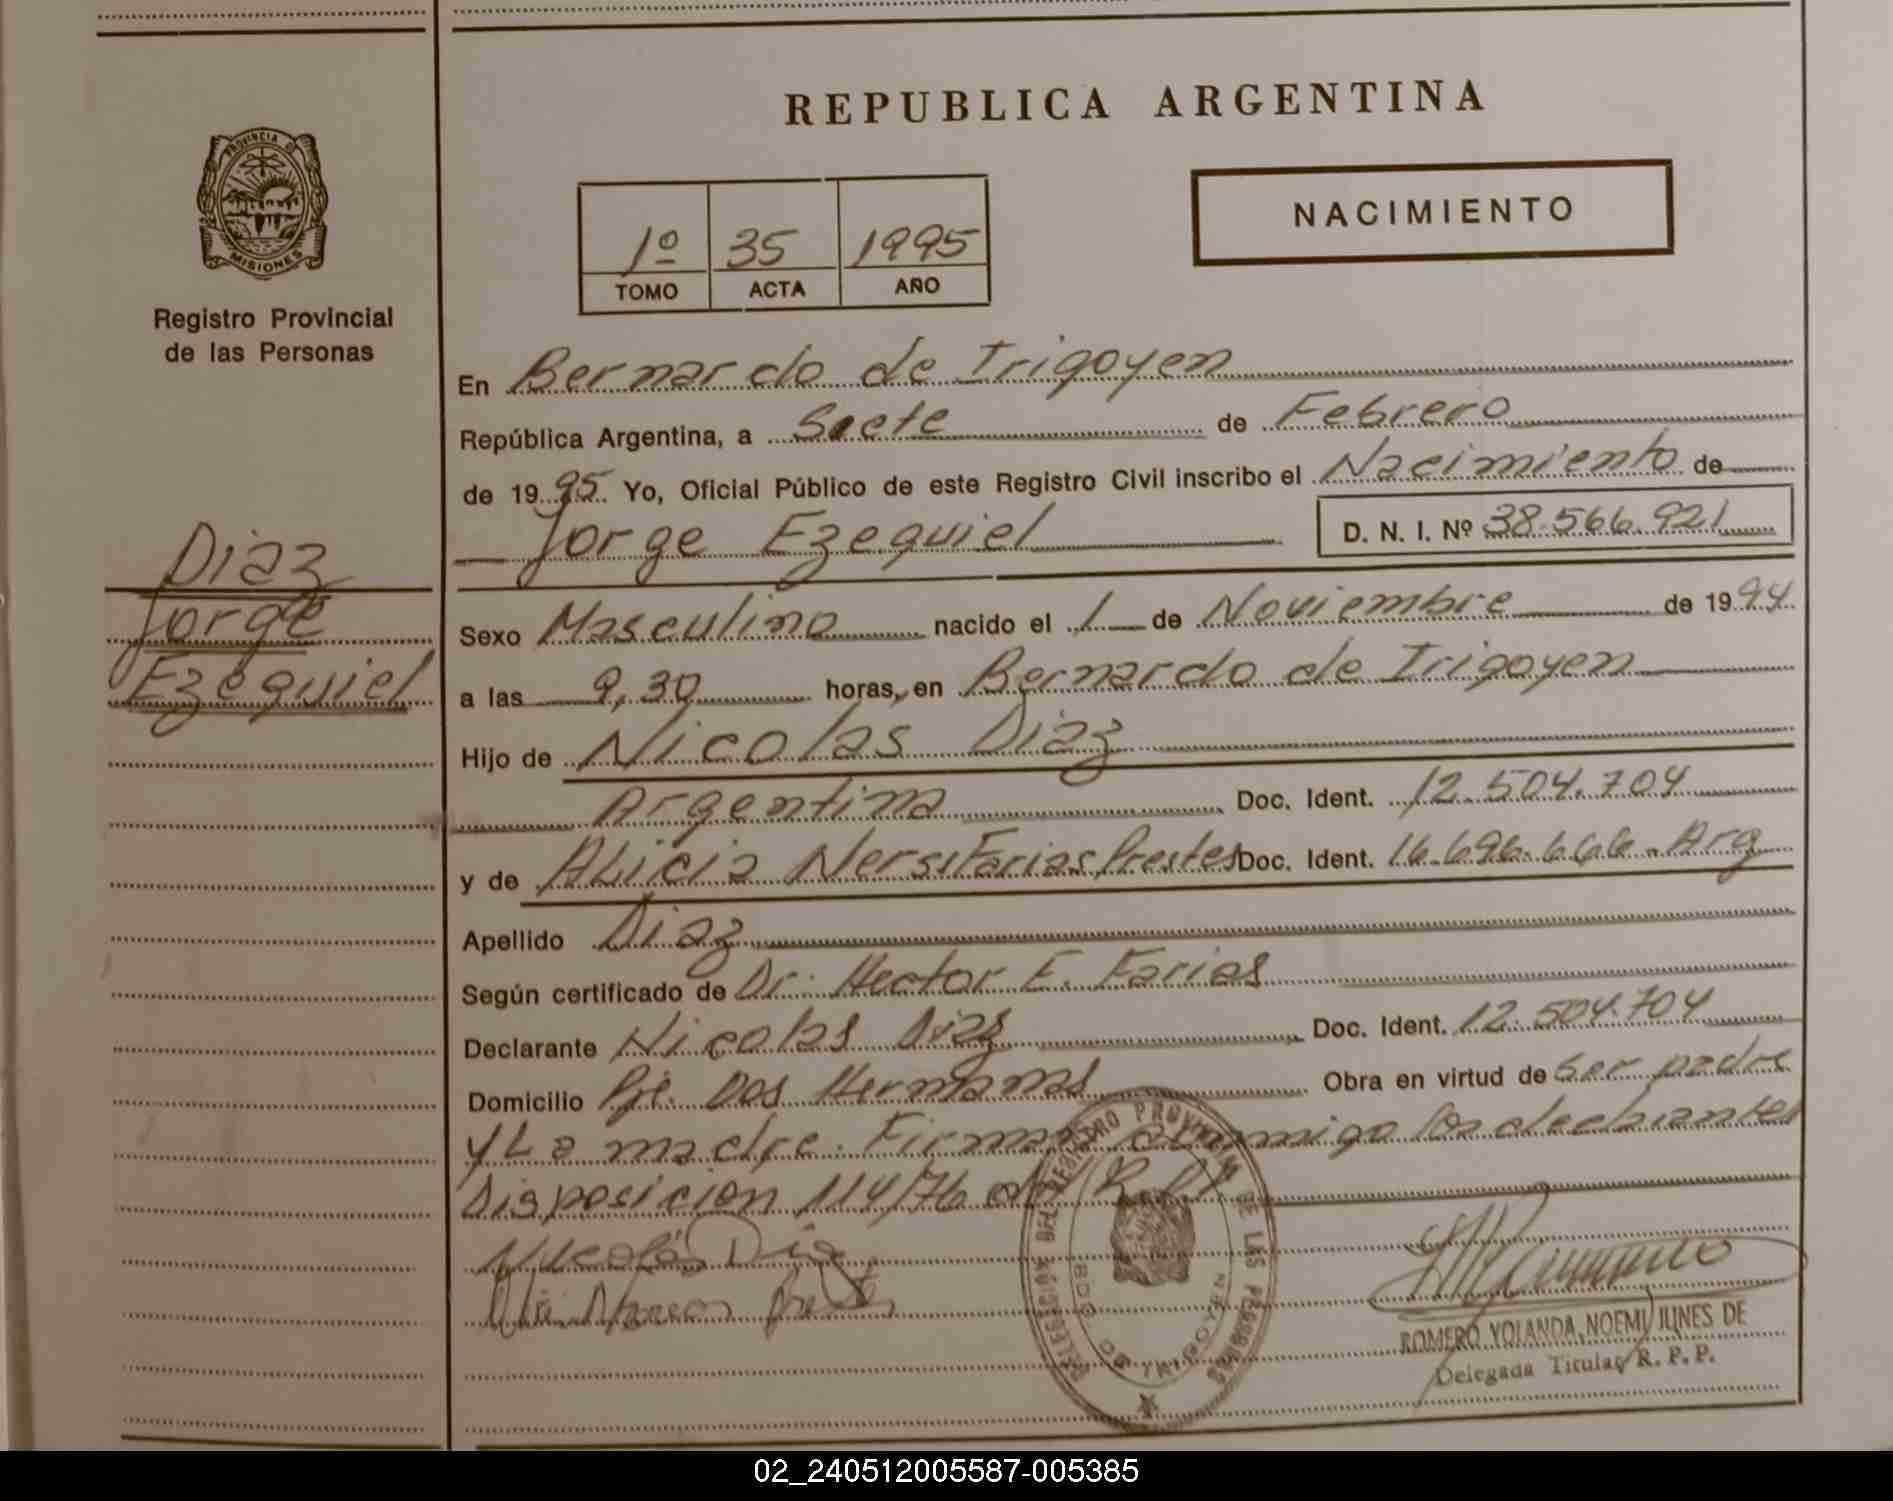 REPUBLICA ARGENTINA
PROVINCIA D
MISIONES
Registro Provincial
de las Personas
1º 35 1995
TOMO ACTA AÑO
NACIMIENTO
En Bernardo de Irigoyen
República Argentina, a Siete de Febrero
de 1995 Yo, Oficial Público de este Registro Civil inscribo el Nacimiento de
Jorge Ezequiel D. N. I. Nº 38.566.921
Diaz
Jorge
Ezequiel
Sexo Masculino nacido el 1 de Noviembre de 1994
a las 9,30 horas, en Bernardo de Irigoyen
Hijo de Nicolas Diaz
Argentina Doc. Ident. 12.504.704
y de Alicia Nersi Farias Prestes Doc. Ident. 16.696.666. Arg
Apellido Diaz
Según certificado de Dr. Hector E. Farias
Declarante Nicolas Diaz Doc. Ident. 12.504.704
Domicilio Pje. Dos Hermanas Obra en virtud de ser padre
y La madre. Firman conmigo los declarantes
Disposicion 114/76 del R.P.P.
Nicolás Diaz
DELEGACION DEL REGISTRO PROVINCIAL DE LAS PERSONAS
BDO DE IRIGOYEN
ROMERO YOLANDA NOEMI JUNES DE
Delegada Titular R. P. P.
02_240512005587-005385